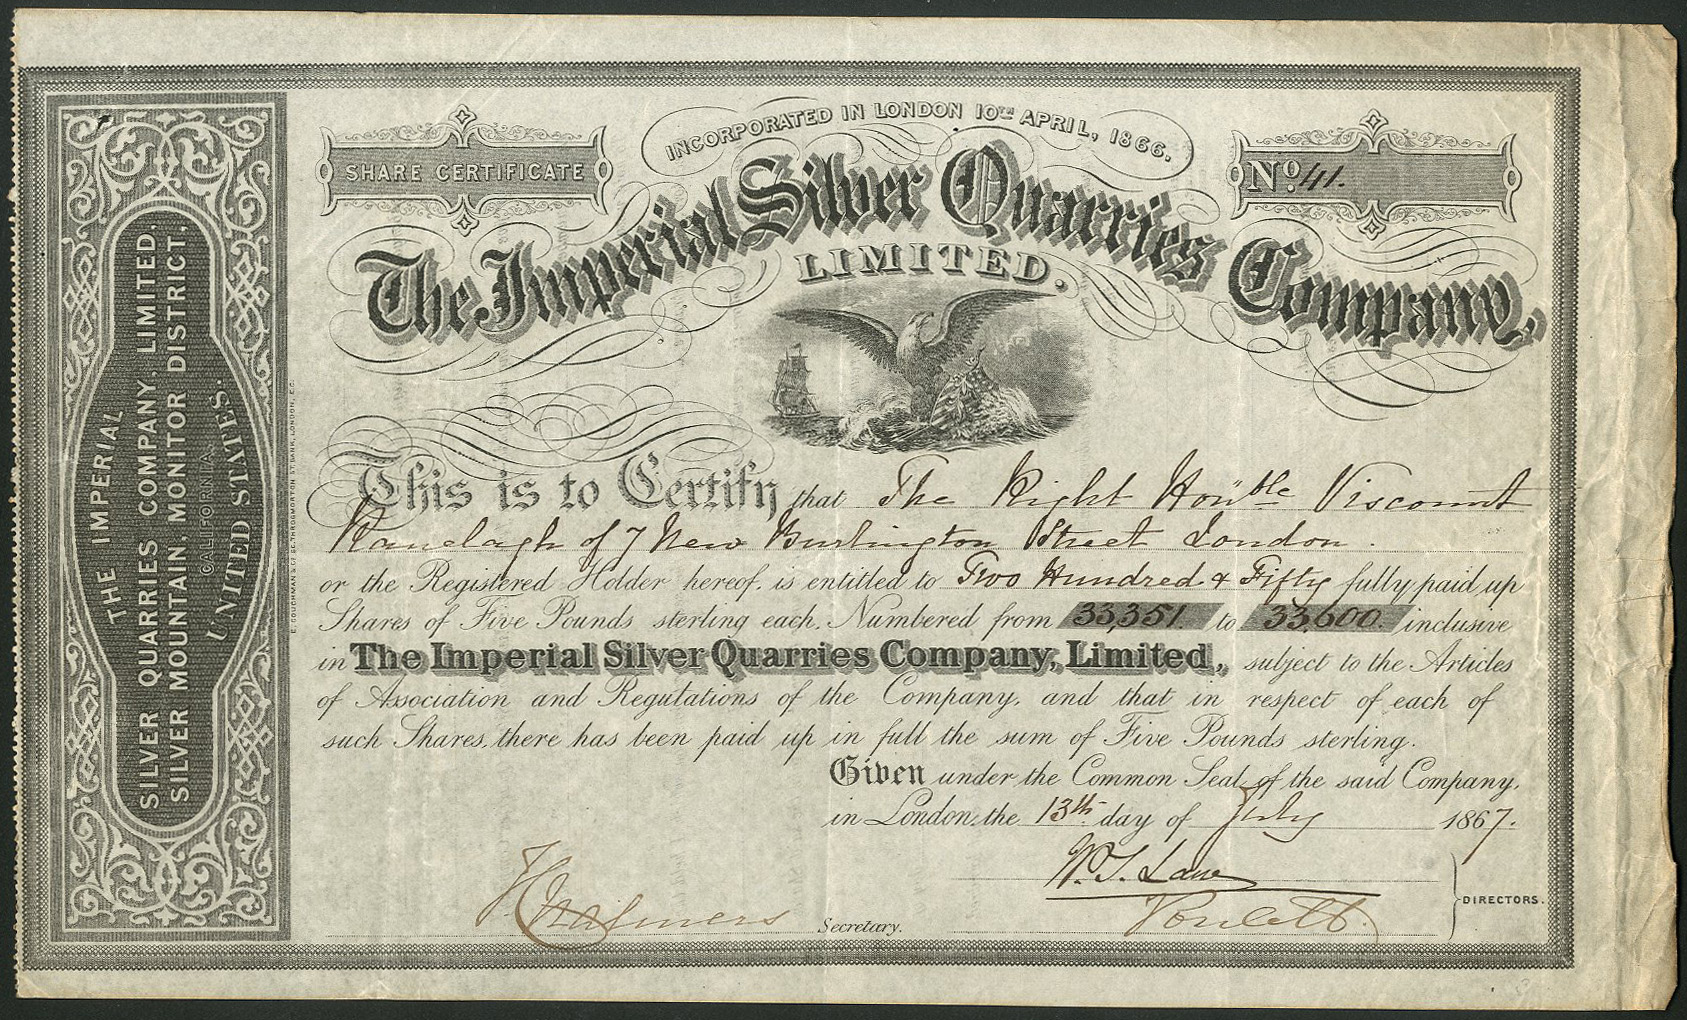 INCORPORATED IN LONDON 10TH APRIL, 1866.
SHARE CERTIFICATE
No. 41.
The Imperial Silver Quarries Company,
LIMITED.
This is to Certify that The Right Honble Viscount
Ranelagh of 7 New Burlington Street London.
or the Registered Holder hereof, is entitled to Two Hundred & Fifty fully paid up
Shares of Five Pounds sterling each, Numbered from 33,351. to 33,600. inclusive
in The Imperial Silver Quarries Company, Limited, subject to the Articles
of Association and Regulations of the Company, and that in respect of each of
such Shares, there has been paid up in full the sum of Five Pounds sterling.
Given under the Common Seal of the said Company,
in London, the 13th day of July 1867.
W. S. Lane
Poulett
DIRECTORS.
Secretary.
THE IMPERIAL
SILVER QUARRIES COMPANY, LIMITED,
SILVER MOUNTAIN, MONITOR DISTRICT,
CALIFORNIA,
UNITED STATES.